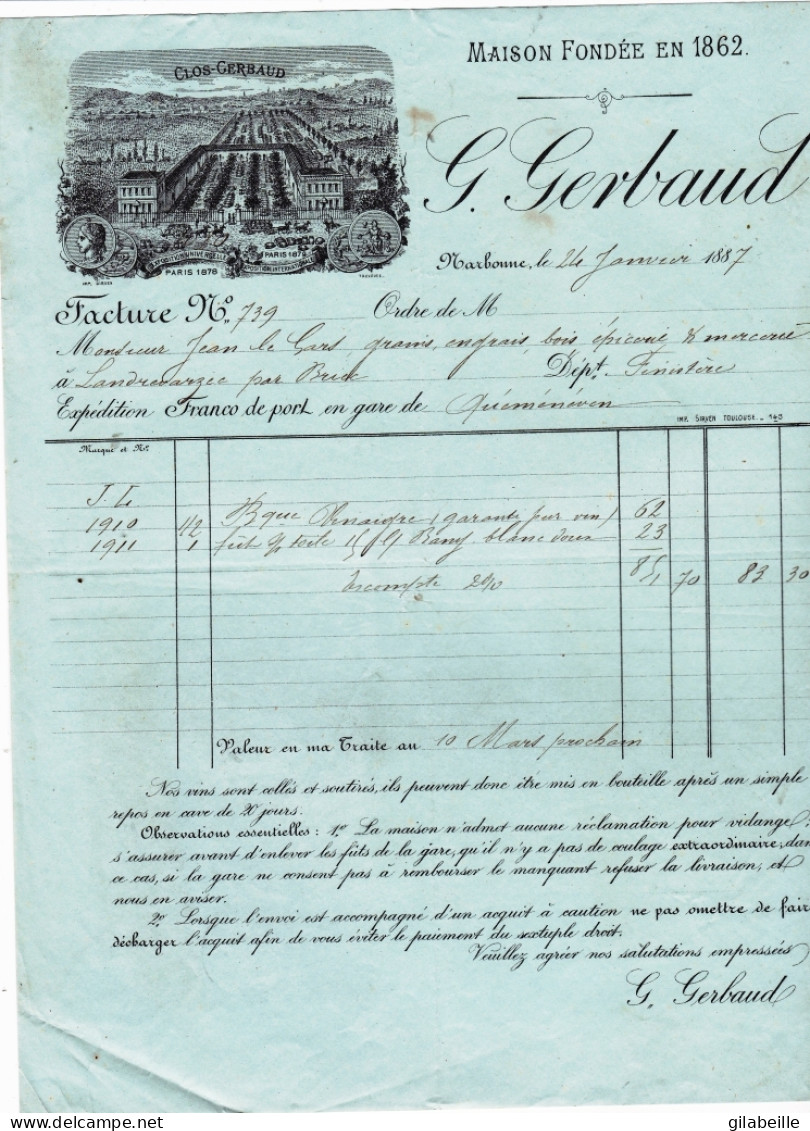 CLOS-GERBAUD
EXPOSITION UNIVERSELLE
PARIS 1878
PARIS 1875
EXPOSITION INTERNATIONALE
IMP. SIRVEN
TOULOUSE
MAISON FONDÉE EN 1862.
G. Gerbaud
Narbonne, le 24 Janvier 1887
Facture No. 739 Ordre de M
Monsieur Jean le Gars, grains, engrais, bois épicerie & mercerie
à Landrevarzec par Briec Dépt. Finistère
Expédition Franco de port en gare de Quéménéven
IMP. SIRVEN TOULOUSE _ 143
Marque et No.
J. L
1910 1/2 Bque Vinaigre (garanti pur vin) 62
1911 1 fût blanc doux 23
85
Escompte 2% 1 70 83 30
Valeur en ma Traite au 10 Mars prochain
Nos vins sont collés et soutirés, ils peuvent donc être mis en bouteille après un simple
repos en cave de 20 jours.
Observations essentielles : 1o. La maison n'admet aucune réclamation pour vidange;
s'assurer avant d'enlever les fûts de la gare, qu'il n'y a pas de coulage extraordinaire, dan
ce cas, si la gare ne consent pas à rembourser le manquant refuser la livraison, et
nous en aviser.
2o. Lorsque l'envoi est accompagné d'un acquit à caution ne pas omettre de fair
décharger l'acquit afin de vous éviter le paiement du sextuple droit.
Veuillez agréer nos salutations empressées
G. Gerbaud
gilabeille